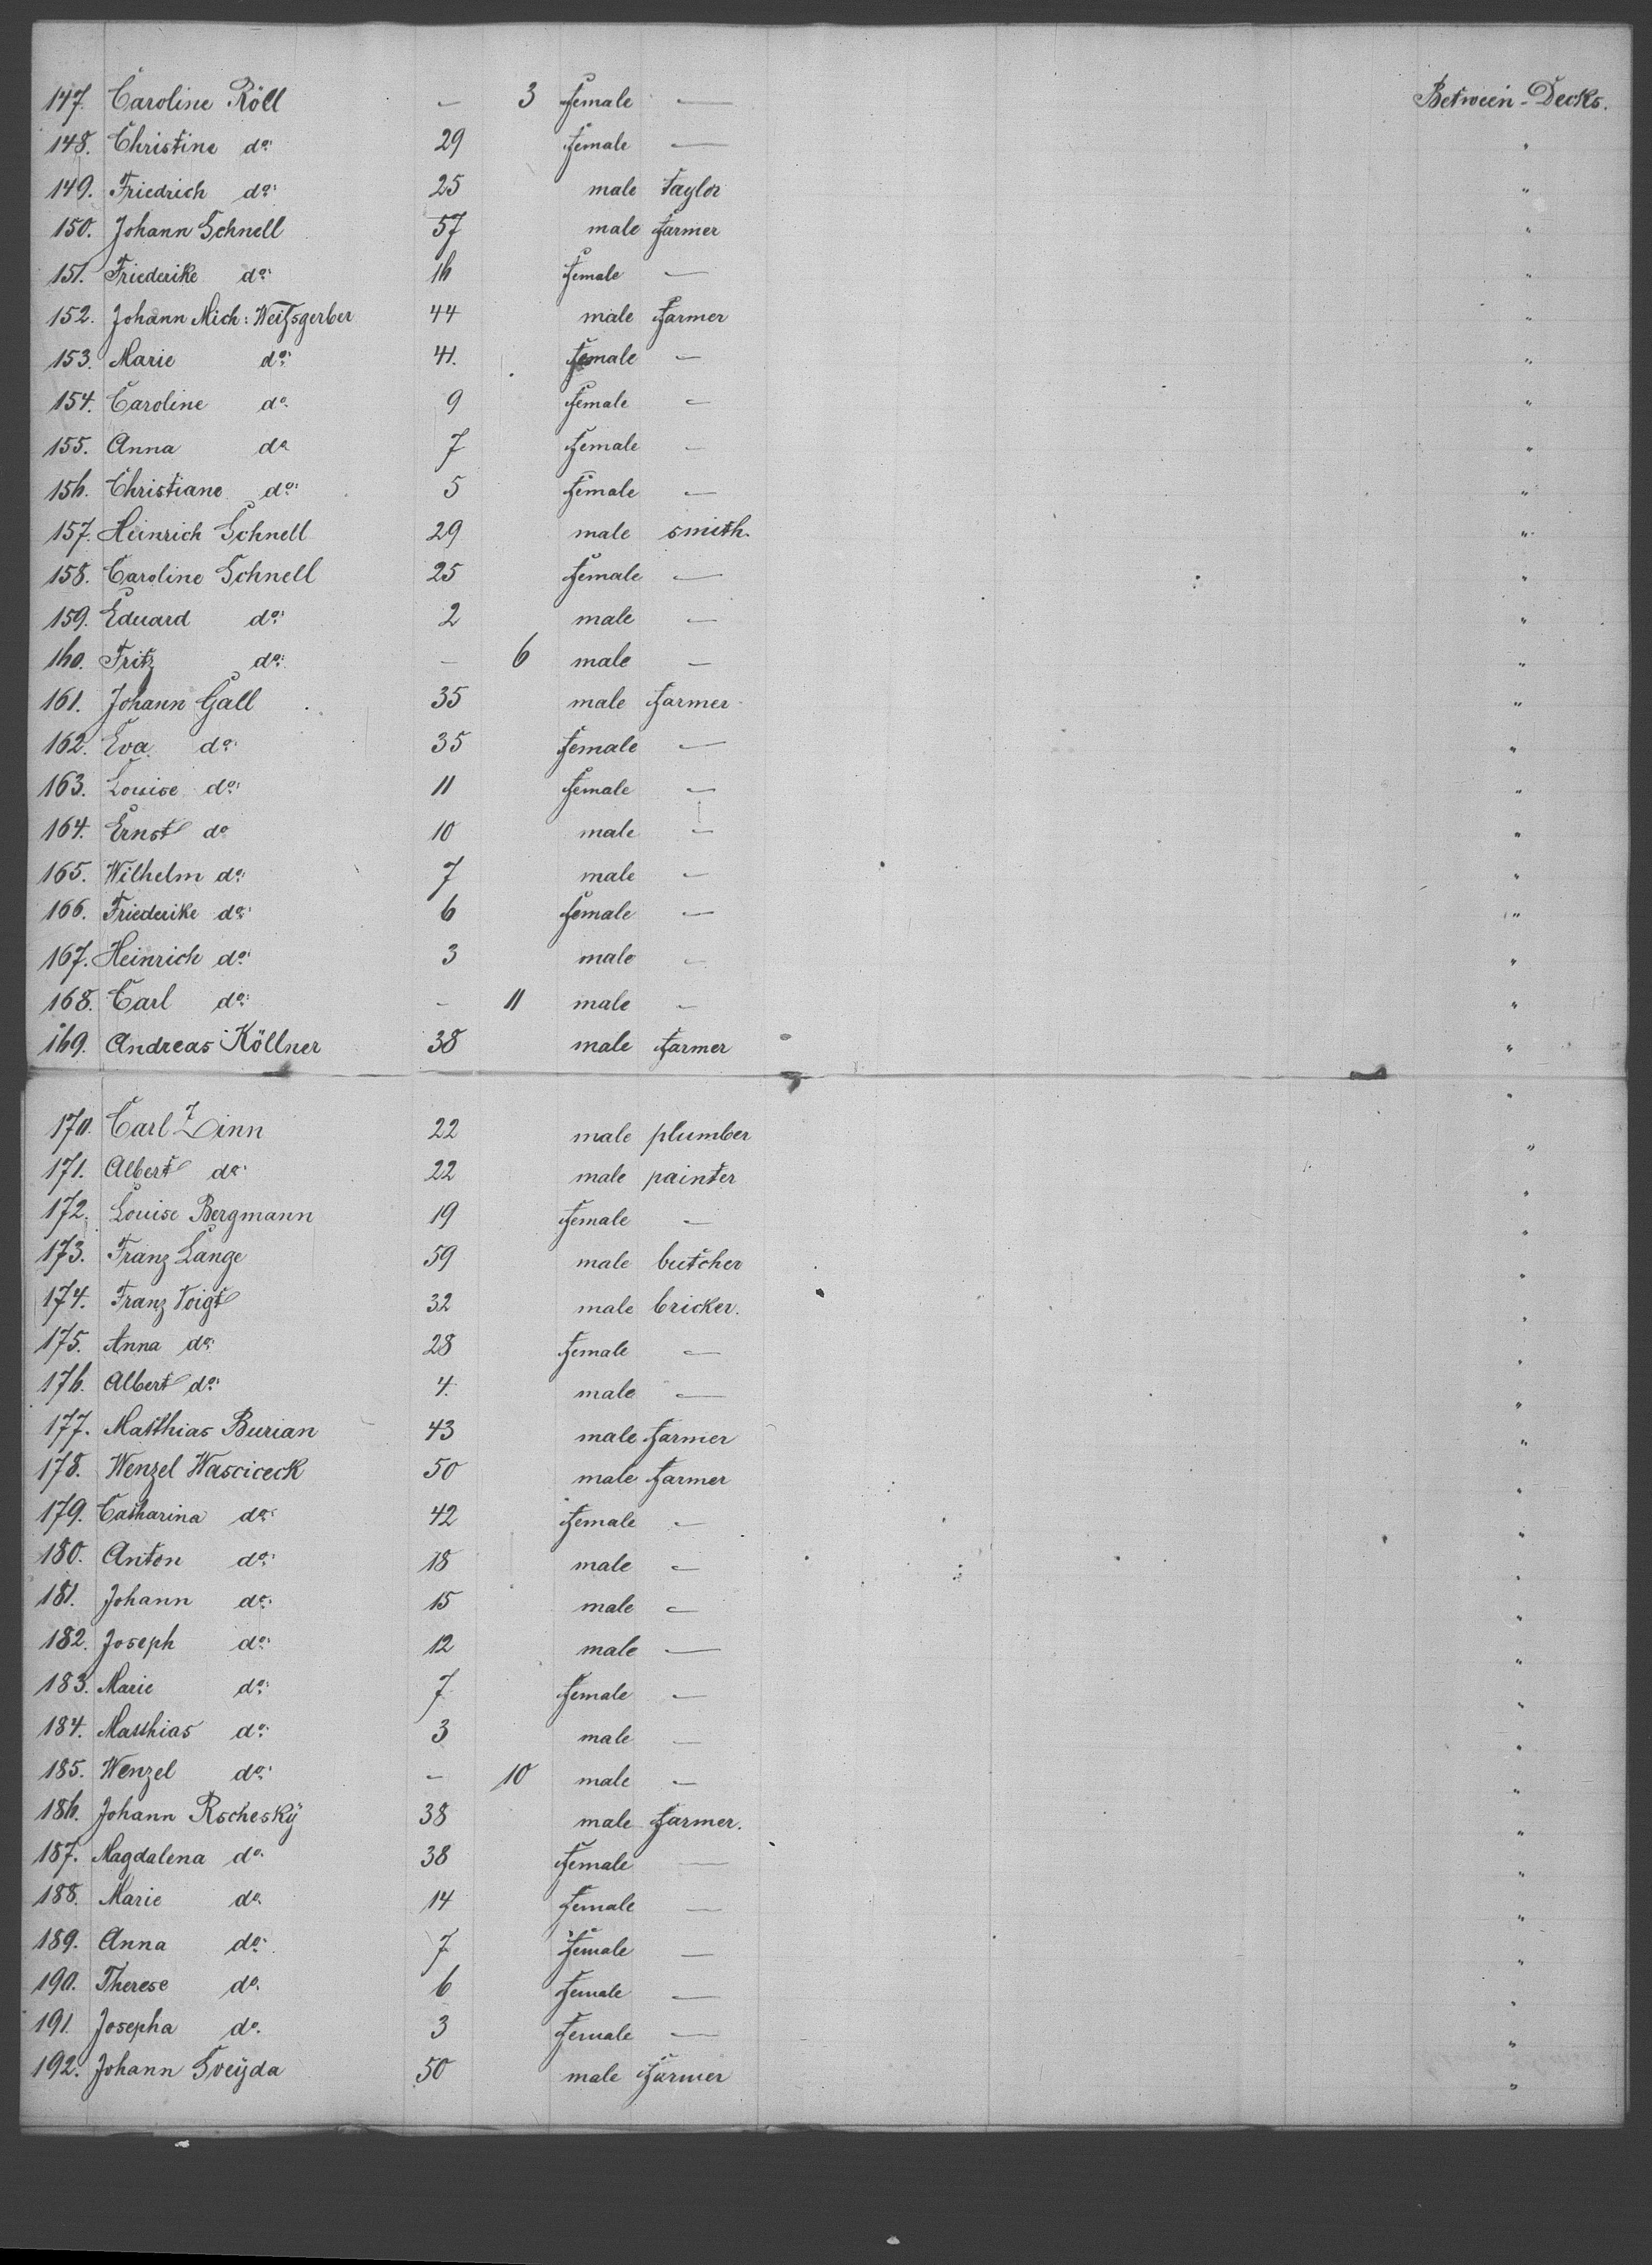 147. Caroline Röll — 3 female — Between-Decks.
148. Christine do: 29 female — "
149. Friedrich do: 25 male taylor "
150. Johann Schnell 57 male farmer "
151. Friederike do: 16 female — "
152. Johann Mich: Weißgerber 44 male farmer "
153. Marie do: 41. female — "
154. Caroline do. 9 female — "
155. Anna do 7 female — "
156. Christiane do: 5 female — "
157. Heinrich Schnell 29 male smith. "
158. Caroline Schnell 25 female — "
159. Eduard do: 2 male — "
160. Fritz do: — 6 male — "
161. Johann Gall 35 male farmer "
162. Eva do: 35 female — "
163. Louise do: 11 female — "
164. Ernst do 10 male — "
165. Wilhelm do: 7 male — "
166. Friederike do: 6 female — "
167. Heinrich do: 3 male — "
168. Carl do: — 11 male — "
169. Andreas Köllner 38 male farmer "
170. Carl Zinn 22 male plumber "
171. Albert do: 22 male painter "
172. Louise Bergmann 19 female — "
173. Franz Lange 59 male butcher "
174. Franz Voigt 32 male bricker. "
175. Anna do: 28 female — "
176. Albert do: 4. male — "
177. Matthias Burian 43 male farmer "
178. Wenzel Wasciceck 50 male farmer "
179. Catharina do: 42 female — "
180. Anton do: 18 male — "
181. Johann do: 15 male — "
182. Joseph do: 12 male — "
183. Marie do: 7 female — "
184. Matthias do: 3 male — "
185. Wenzel do: — 10 male — "
186. Johann Rscheskÿ 38 male farmer. "
187. Magdalena do. 38 female — "
188. Marie do. 14 female — "
189. Anna do: 7 female — "
190. Therese do. 6 female — "
191. Josepha do. 3 female — "
192. Johann Sveÿda 50 male farmer "